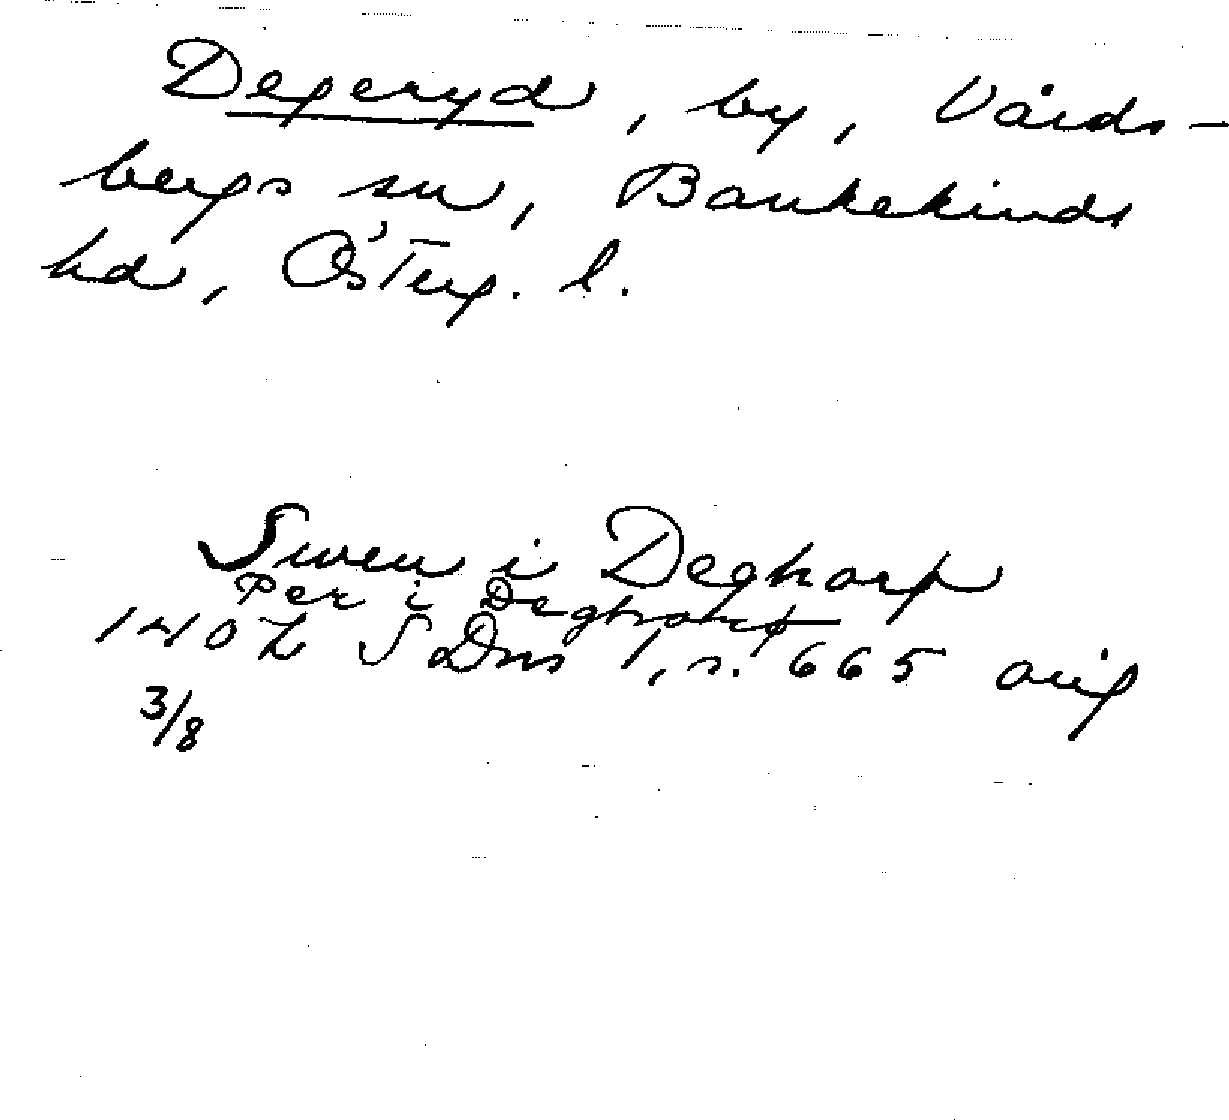 Degeryd, by, Vårds-
bergs sn, Bankekinds
hd, Österg. l.
Swen i Degharp
Per i Degharp
1402 SDns 1, s. 665 orig
3/8